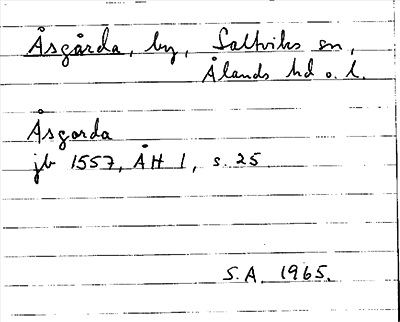 Åsgårda, by, Saltviks sn,
Ålands hd o. l.
Åsgarda
jb 1557, ÅH 1, s. 25
S.A. 1965.